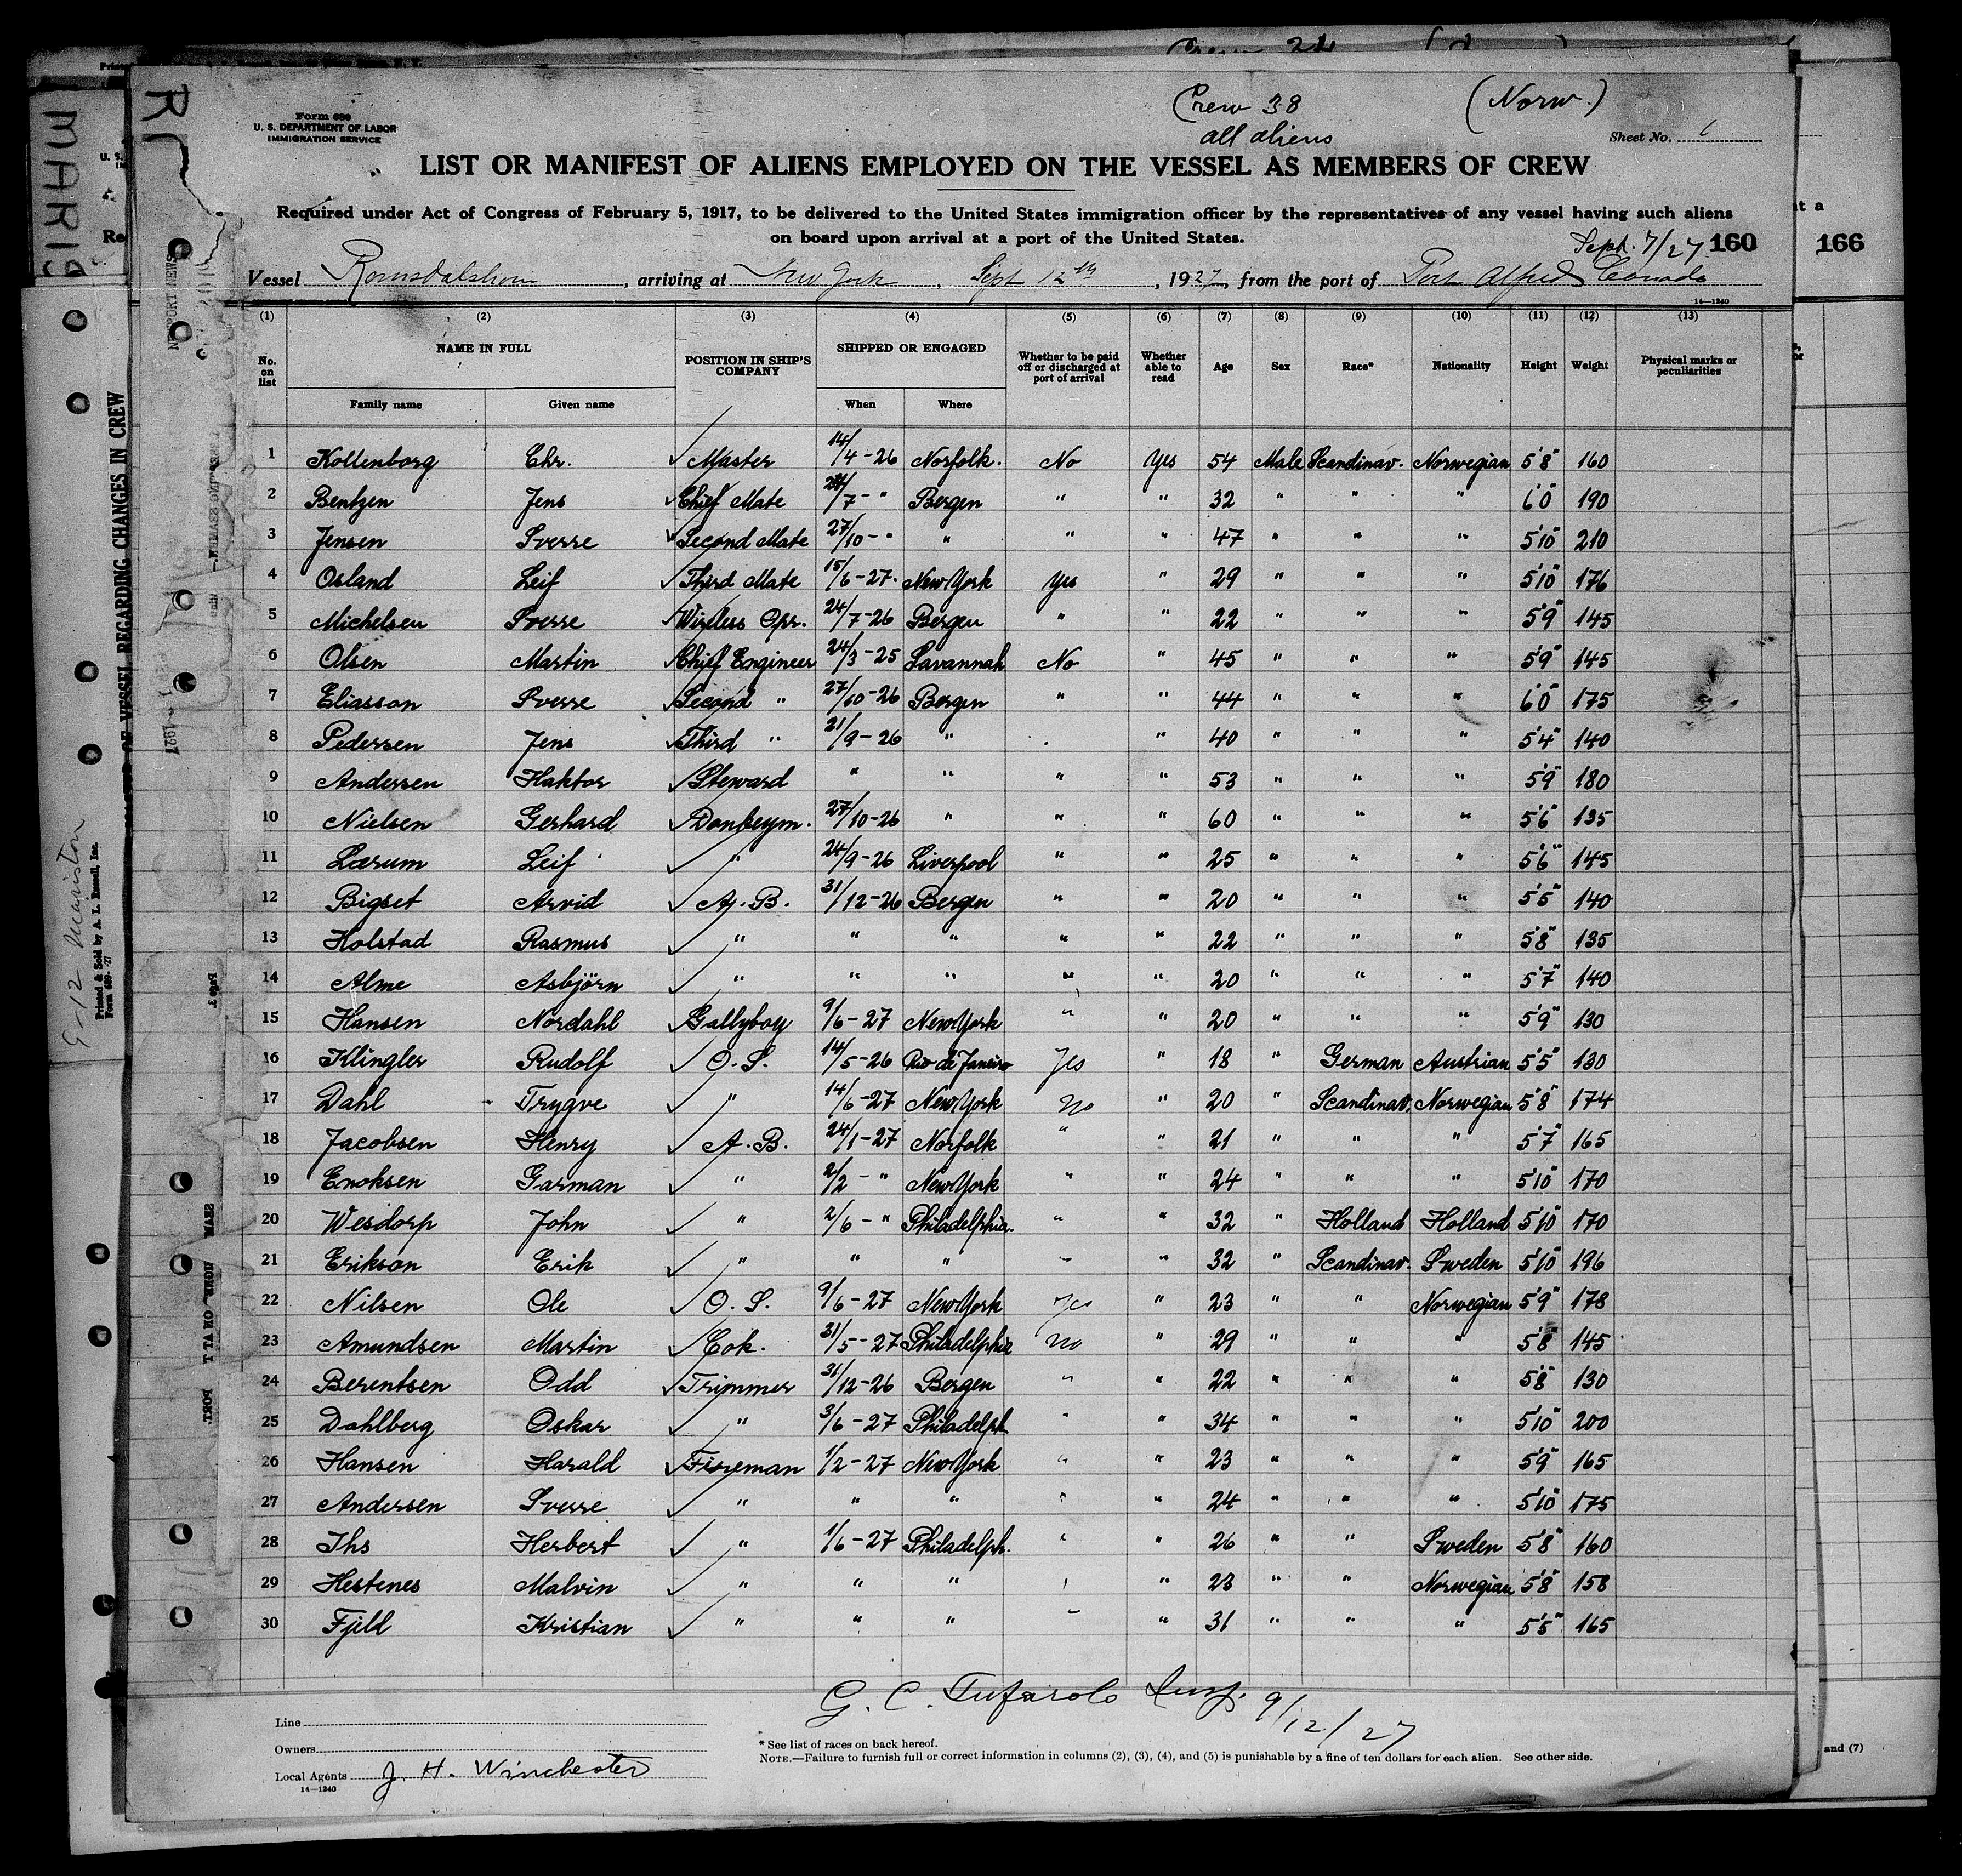 Crew 38 (Norw.)
all aliens
Form 680
U. S. DEPARTMENT OF LABOR
IMMIGRATION SERVICE
Sheet No. 1
LIST OR MANIFEST OF ALIENS EMPLOYED ON THE VESSEL AS MEMBERS OF CREW
Required under Act of Congress of February 5, 1917, to be delivered to the United States immigration officer by the representatives of any vessel having such aliens
on board upon arrival at a port of the United States.
Sept. 7/27 160 166
Vessel Romsdalshorn, arriving at New York, Sept 12th, 1927, from the port of Port Alfred Canada
14—1240
(1) (2) (3) (4) (5) (6) (7) (8) (9) (10) (11) (12) (13)
No. on list NAME IN FULL POSITION IN SHIP'S COMPANY SHIPPED OR ENGAGED Whether to be paid off or discharged at port of arrival Whether able to read Age Sex Race* Nationality Height Weight Physical marks or peculiarities
Family name Given name When Where
1 Kollenborg Chr. Master 14/4-26 Norfolk. No Yes 54 Male Scandinav. Norwegian 5'8" 160
2 Bentzen Jens Chief Mate 24/7- " Bergen " " 32 " " " 6'0" 190
3 Jensen Sverre Second Mate 27/10- " " " " 47 " " " 5'10" 210
4 Osland Leif Third Mate 15/6-27. New York Yes " 29 " " " 5'10" 176
5 Michelsen Sverre Wireless Opr. 24/7-26 Bergen " " 22 " " " 5'9" 145
6 Olsen Martin Chief Engineer 24/3-25 Savannah No " 45 " " " 5'9" 145
7 Eliasson Sverre Second " 27/10-26 Bergen " " 44 " " " 6'0" 175
8 Pedersen Jens Third " 21/9-26 " . " 40 " " " 5'4" 140
9 Andersen Haktor Steward " " " " 53 " " " 5'9" 180
10 Nielsen Gerhard Donkeym. 27/10-26 " " " 60 " " " 5'6" 135
11 Lærum Leif " 24/9-26 Liverpool " " 25 " " " 5'6" 145
12 Bigset Arvid A.B. 31/12-26 Bergen " " 20 " " " 5'5" 140
13 Holstad Rasmus " " " " " 22 " " " 5'8" 135
14 Alme Asbjörn " " " " " 20 " " " 5'7" 140
15 Hansen Nordahl Gallyboy 9/6-27 New York " " 20 " " " 5'9" 130
16 Klingler Rudolf O.S. 14/5-26 Rio de Janeiro Yes " 18 " German Austrian 5'5" 130
17 Dahl Trygve " 14/6-27 New York No " 20 " Scandinav. Norwegian 5'8" 174
18 Jacobsen Henry A.B. 24/1-27 Norfolk " " 21 " " " 5'7" 165
19 Enoksen Garman " 2/2- " New York " " 24 " " " 5'10" 170
20 Wesdorp John " 2/6- " Philadelphia. " " 32 " Holland Holland 5'10" 170
21 Erikson Erik " " " " " 32 " Scandinav. Sweden 5'10" 196
22 Nilsen Ole O.S. 9/6-27 New York Yes " 23 " " Norwegian 5'9" 178
23 Amundsen Martin Cok. 31/5-27 Philadelphia No " 29 " " " 5'8" 145
24 Berentsen Odd Trimmer 31/12-26 Bergen " " 22 " " " 5'8" 130
25 Dahlberg Oskar " 3/6-27 Philadelph " " 34 " " " 5'10" 200
26 Hansen Harald Fireman 1/2-27 New York " " 23 " " " 5'9" 165
27 Andersen Sverre " " " " " 24 " " " 5'10" 175
28 Ihs Herbert " 1/6-27 Philadelph. " " 26 " " Sweden 5'8" 160
29 Hestenes Malvin " " " " " 23 " " Norwegian 5'8" 158
30 Fjeld Kristian " " " " " 31 " " " 5'5" 165
G. C. Tufarolo Insp. 9/12/27
Line
Owners
Local Agents J. H. Winchester
14—1240
* See list of races on back hereof.
NOTE.—Failure to furnish full or correct information in columns (2), (3), (4), and (5) is punishable by a fine of ten dollars for each alien. See other side.
and (7)
MARIS
OF VESSEL REGARDING CHANGES IN CREW
Printed & Sold by A. L. Russell, Inc.
Form 689-'27
NEWPORT NEWS
1927
PORT.